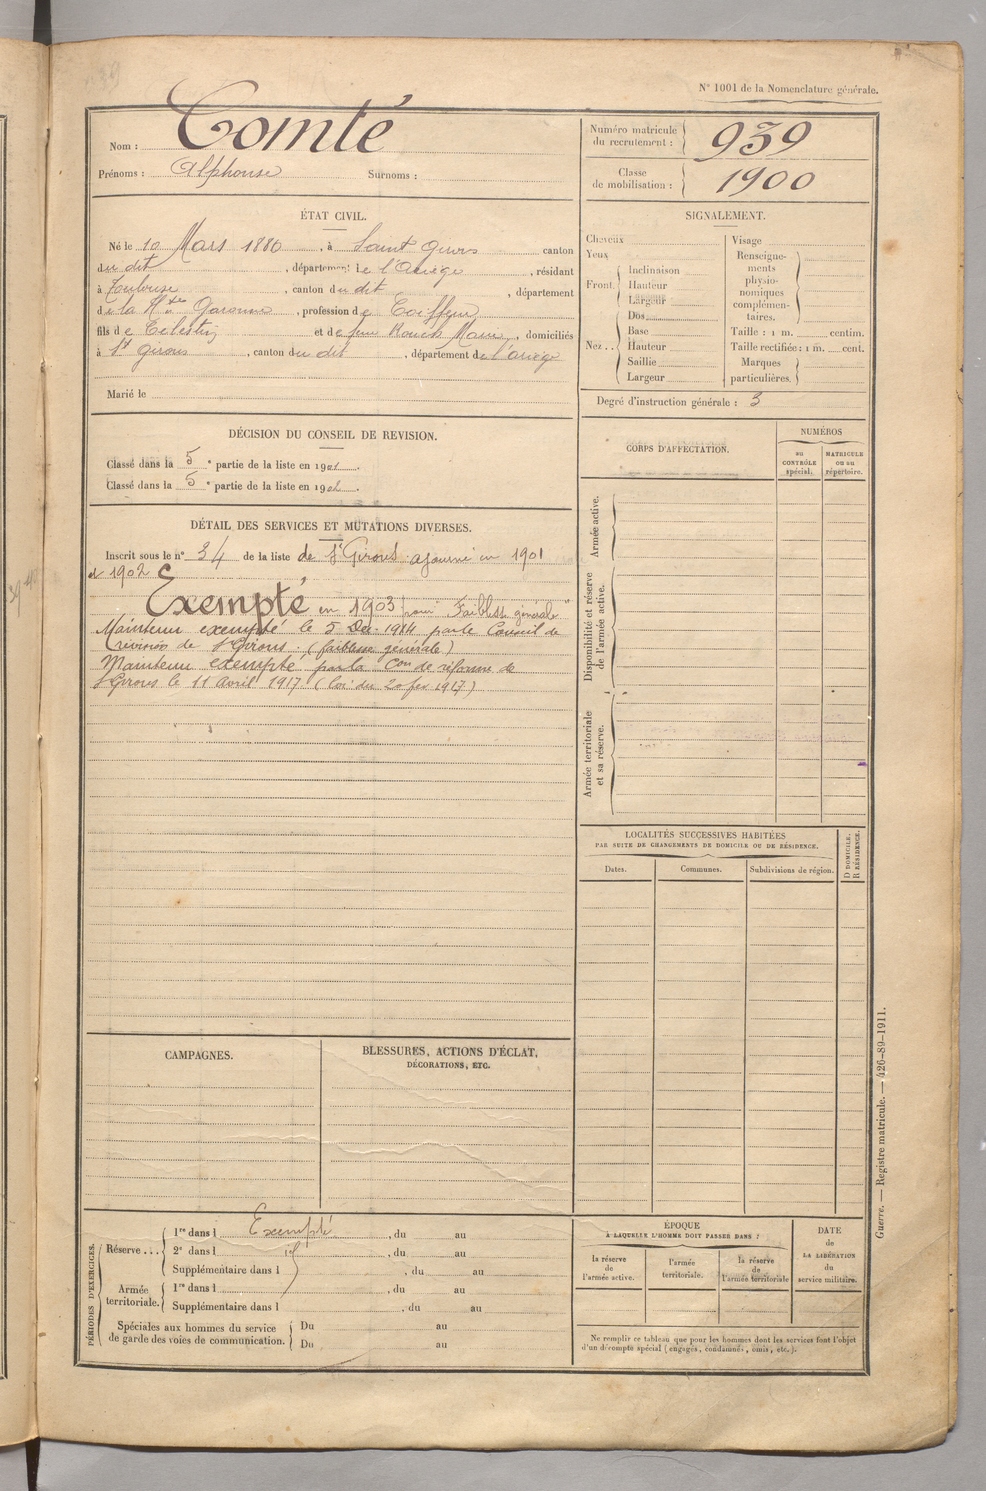 N° 1001 de la Nomenclature générale.
Nom : Comté
Prénoms : Alphonse Surnoms :
Numéro matricule du recrutement : 939
Classe de mobilisation : 1900
ÉTAT CIVIL.
Né le 10 Mars 1880, à Saint Girons canton
du dit, département de l'Ariège, résidant
à Toulouse, canton du dit, département
de la Hte Garonne, profession de Coiffeur
fils de Célestin et de feue Rouch Marie, domiciliés
à St Girons, canton du dit, département de l'Ariège
Marié le
SIGNALEMENT.
Cheveux
Yeux
Front
Inclinaison
Hauteur
Largeur
Nez..
Dos
Base
Hauteur
Saillie
Largeur
Visage
Renseigne-
ments
physio-
nomiques
complémen-
taires.
Taille : 1 m. centim.
Taille rectifiée : 1 m. cent.
Marques
particulières.
Degré d'instruction générale : 3
DÉCISION DU CONSEIL DE REVISION.
Classé dans la 5e partie de la liste en 1901.
Classé dans la 5e partie de la liste en 1902.
DÉTAIL DES SERVICES ET MUTATIONS DIVERSES.
Inscrit sous le n° 34 de la liste de St Girons ajourné en 1901
et 1902
Exempté en 1903 pour "Faiblesse générale"
Maintenu exempté le 5 Dec. 1914 par le Conseil de
revision de St Girons. (faiblesse générale)
Maintenu exempté par la Con de réforme de
St Girons le 11 avril 1917 (loi du 20 fev 1917)
CORPS D'AFFECTATION.
NUMÉROS
au
CONTRÔLE
spécial.
MATRICULE
ou au
répertoire.
Armée active.
Disponibilité et réserve
de l'armée active.
Armée territoriale
et sa réserve.
LOCALITÉS SUCCESSIVES HABITÉES
PAR SUITE DE CHANGEMENTS DE DOMICILE OU DE RÉSIDENCE.
Dates.
Communes.
Subdivisions de région.
D DOMICILE.
R RÉSIDENCE.
CAMPAGNES.
BLESSURES, ACTIONS D'ÉCLAT,
DÉCORATIONS, ETC.
PÉRIODES D'EXERCICES.
Réserve...
1re dans l Exempté, du au
2e dans l, du au
Supplémentaire dans l, du au
Armée
territoriale.
1re dans l, du au
Supplémentaire dans l, du au
Spéciales aux hommes du service
de garde des voies de communication.
Du au
Du au
ÉPOQUE
À LAQUELLE L'HOMME DOIT PASSER DANS :
la réserve
de
l'armée active.
l'armée
territoriale.
la réserve
de
l'armée territoriale
DATE
de
LA LIBÉRATION
du
service militaire.
Ne remplir ce tableau que pour les hommes dont les services font l'objet
d'un décompte spécial (engagés, condamnés, omis, etc.).
Guerre. — Registre matricule. — 426-89-1911.